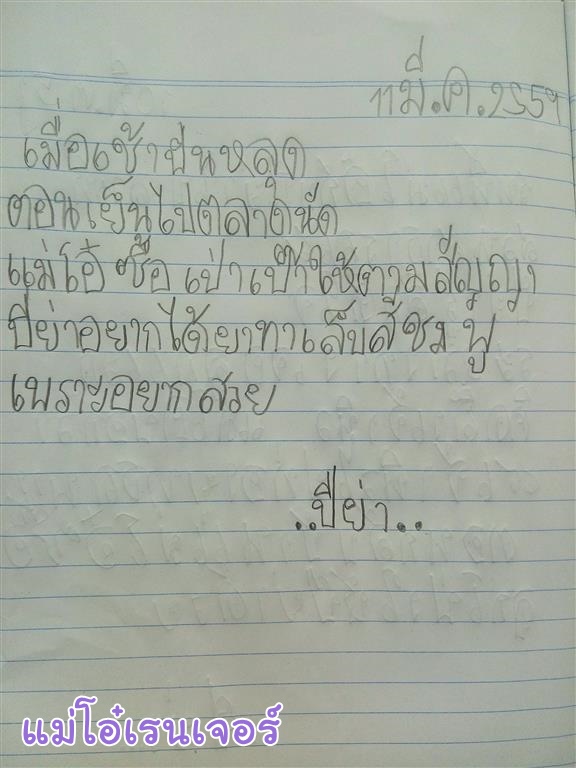 11 มี.ค.2559
เมื่อเช้าฟันหลุด
ตอนเย็นไปตลาดนัด
แม่โอ๋ ซื้อ เป่าเป้าให้ตามสัญญา
ปีย่าอยากได้ยาทาเล็บสีชมพู
เพราะอยากสวย
..ปีย่า..
แม่โอ๋เรนเจอร์